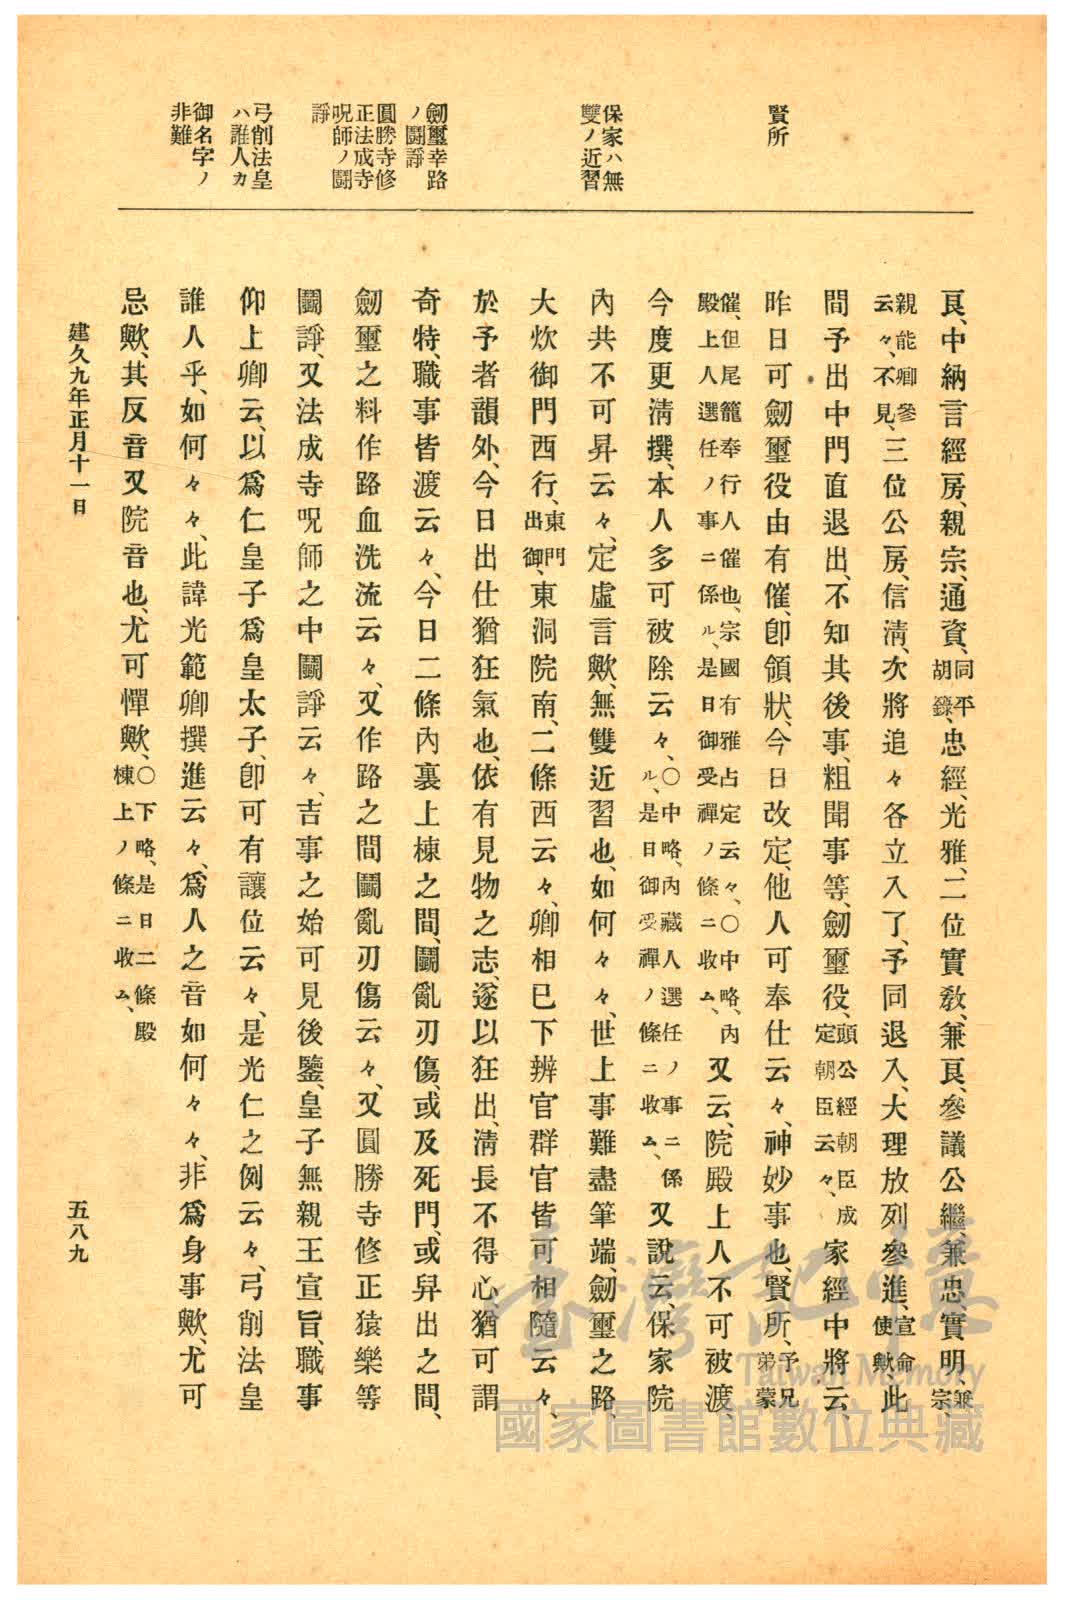 賢所
保家ハ無
雙ノ近習
劒璽幸路
ノ鬪諍
圓勝寺修
正法成寺
呪師ノ鬪
諍
弓削法皇
ハ誰人カ
御名字ノ
非難
良、中納言經房、親宗、通資、同平胡籙、忠經、光雅、二位實敎、兼良、參議公繼、兼忠、實明、兼宗、
親能卿參云々、不見、三位公房、信淸、次將追々各立入了、予同退入、大理放列參進、宣命使歟、此
間予出中門直退出、不知其後事、粗聞事等、劒璽役、頭公經朝臣成定朝臣云々、家經中將云、
昨日可劒璽役由有催、卽領狀、今日改定、他人可奉仕云々、神妙事也、賢所、予兄弟蒙
催、但尾籠奉行人催也、宗國有雅占定云々、〇中略、內殿上人選任ノ事ニ係ル、是日御受禪ノ條ニ收ム、又云、院殿上人不可被渡、
今度更淸撰、本人多可被除云々、〇中略、內藏人選任ノ事ニ係ル、是日御受禪ノ條ニ收ム、又說云、保家院
內共不可昇云々、定虛言歟、無雙近習也、如何々々、世上事難盡筆端、劒璽之路、
大炊御門西行、東門出御、東洞院南、二條西云々、卿相已下辨官群官皆可相隨云々、
於予者韻外、今日出仕猶狂氣也、依有見物之志、遂以狂出、淸長不得心、猶可謂
奇特、職事皆渡云々、今日二條內裏上棟之間、鬪亂刃傷、或及死門、或舁出之間、
劒璽之料作路血洗流云々、又作路之間鬪亂刃傷云々、又圓勝寺修正猿樂等
鬪諍、又法成寺呪師之中鬪諍云々、吉事之始可見後鑒、皇子無親王宣旨、職事
仰上卿云、以爲仁皇子爲皇太子、卽可有讓位云々、是光仁之例云々、弓削法皇
誰人乎、如何々々、此諱光範卿撰進云々、爲人之音如何々々、非爲身事歟、尤可
忌歟、其反音又院音也、尤可憚歟、〇下略、是日二條殿棟上ノ條ニ收ム、
建久九年正月十一日
五八九
臺灣記憶
Taiwan Memory
國家圖書館數位典藏